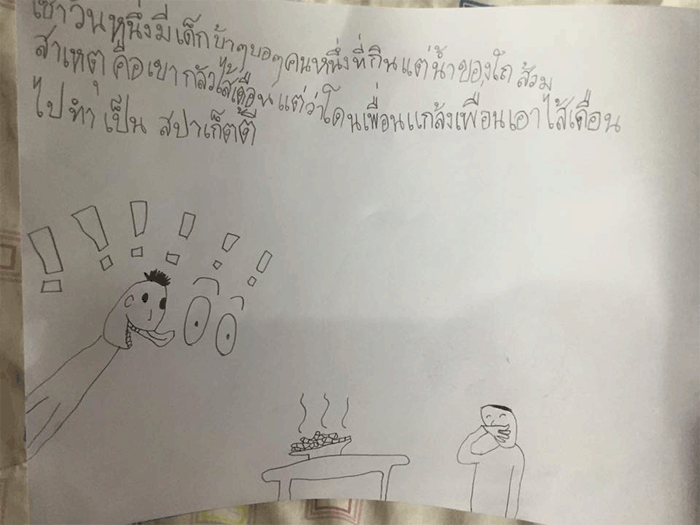 เช้าวันหนึ่งมีเด็กบ้าๆบอๆคนหนึ่งที่กินแต่น้ำของโถส้วม
สาเหตุ คือเขากลัวไส้เดือน แต่ว่าโดนเพื่อนแกล้งเพื่อนเอาไส้เดือน
ไปทำเป็น สปาเก็ตตี้
!!!!!!